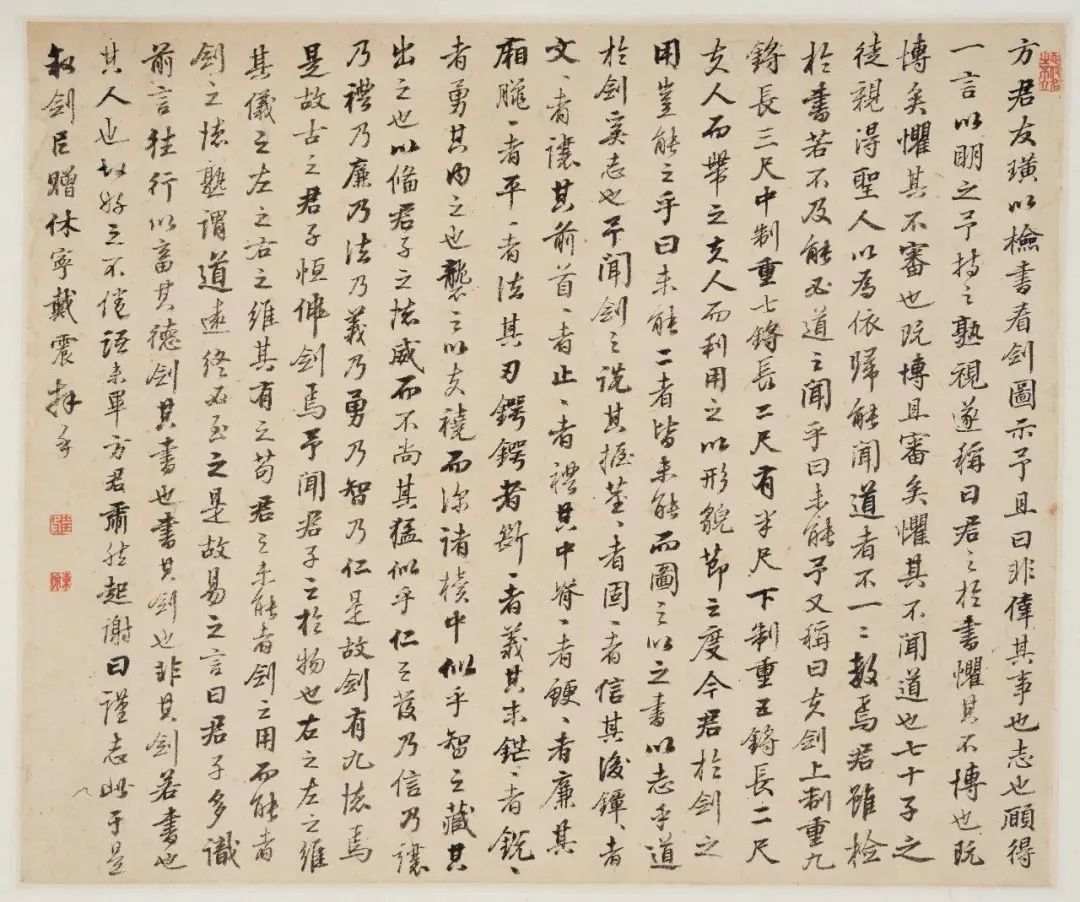 方君友璜以檢書看劍圖示予且曰非偉其事也志也願得
一言以明之予持之熟視遂稱曰君之於書懼其不博也既
博矣懼其不審也既博且審矣懼其不聞道也七十子之
徒親得聖人以為依歸能聞道者不一二數焉君雖檢
於書若不及能必道之聞乎曰未能予又稱曰夫劍上制重九
鋝長三尺中制重七鋝長二尺有半尺下制重五鋝長二尺
夫人而舉之夫人而利用之以形貌節之度今君於劍之
用豈能之乎曰未能二者皆未能而圖之以之書以志乎道
於劍奚志也予聞劍之說其握莖莖者固固者信其後鐔鐔者
文文者讓其前首首者止止者禮其中脊脊者鯁鯁者廉其
兩臘臘者平平者法其刃鍔鍔者斷斷者義其末鋩鋩者銳銳
者勇其內之也襲之以夫襓而深諸櫝中似乎智之藏其
出之也以備君子之德威而不尚其猛似乎仁之發乃信乃讓
乃禮乃廉乃法乃義乃勇乃智乃仁是故劍有九德焉
是故古之君子恒佩劍焉予聞君子之於物也右之左之維
其儀之左之右之維其有之苟君之未能者劍之用而能者
劍之德孰謂道遠終必至之是故易之言曰君子多識
前言往行以畜其德劍其書也書其劍也非其劍若書也
其人也故好之不倦語未畢方君肅然起謝曰謹志此于是
叙劍臣贈休寧戴震拜手